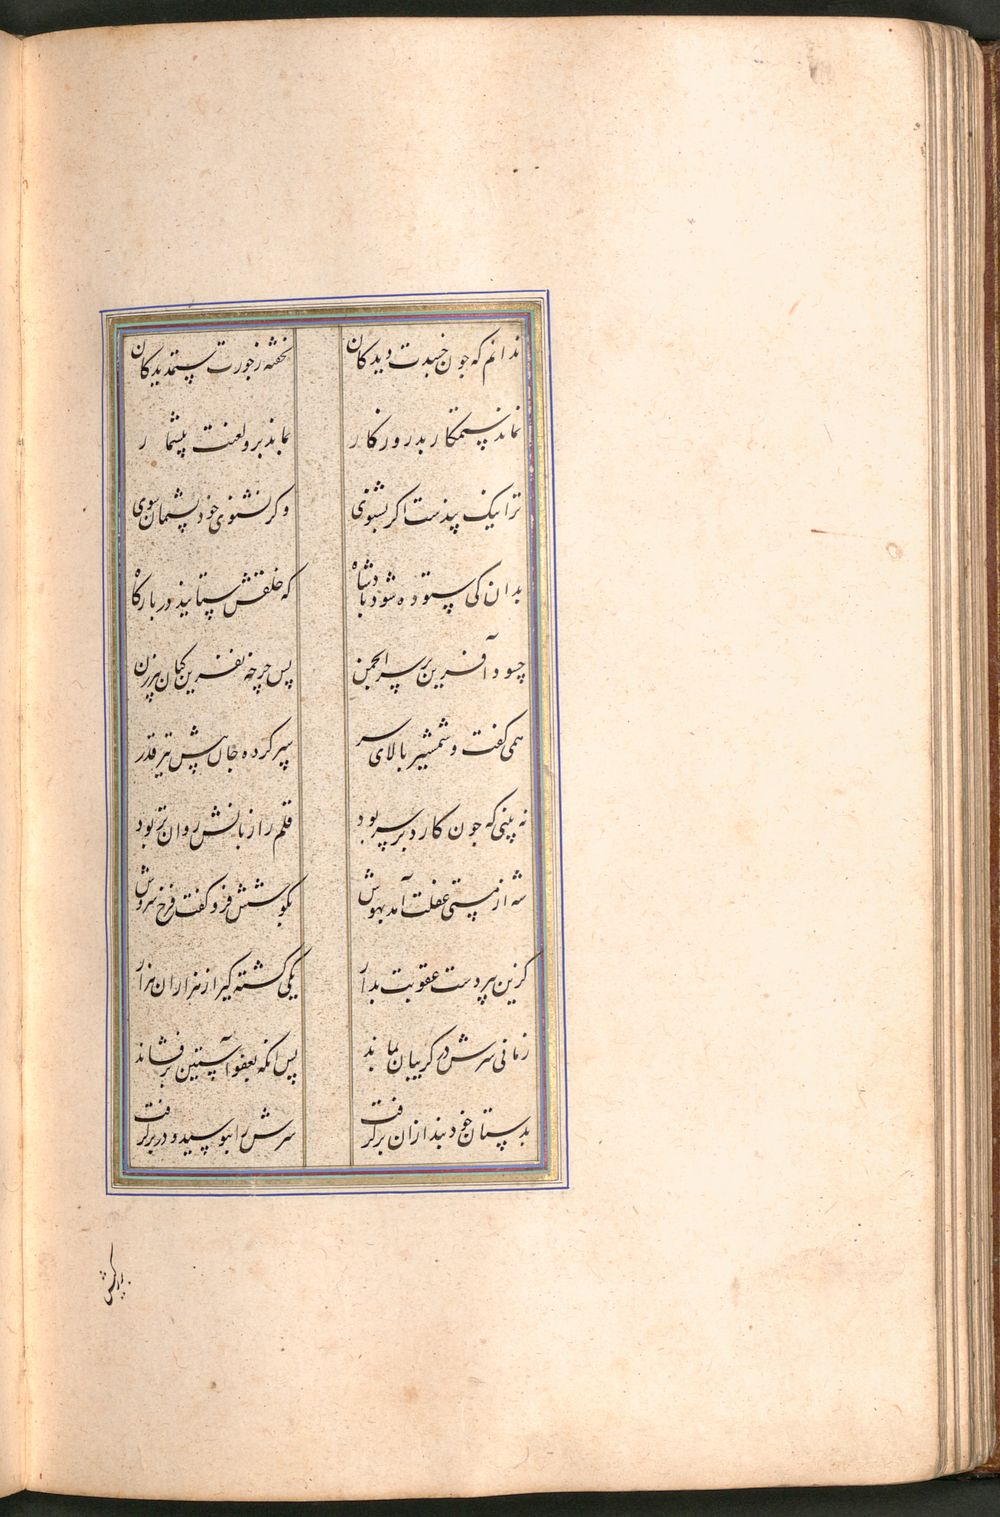 ندانم که جون خسبدت دیدکان نخفته زجورت ستمدیدکان
نماند ستمکار بد روزکار بماند برو لعنت پیشمار
ترا نیک پندست اکر بشنوی وکر نشنوی خود پشیمان شوی
بدان کی ستوده شود بادشاه که خلقش ستایند در بارکاه
چسود آفرین بر سر انجمن پس چرخه نفرین کنان پیر زن
همی کفت و شمشیر بالای سر سپر کرده جان پیش تیر قدر
نه بینی که جون کارد بر سر بود قلم را زبانش روان تر بود
شه از مستی غفلت آمد بهوش بکوشش فرو کفت فرخ سروش
کزین پیر دست عقوبت بدار یکی کشته کیر از هزاران هزار
زمانی سرش در کریبان بماند پس انکه بعفو آستین بر فشاند
بدستان خود بند ازان بر کرفت سرش را ببوسید و در بر کرفت